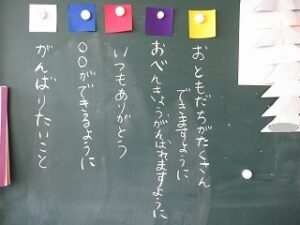 おともだちがたくさん
できますように
おべんきょうがんばれますように
いつもありがとう
○○ができるように
がんばりたいこと